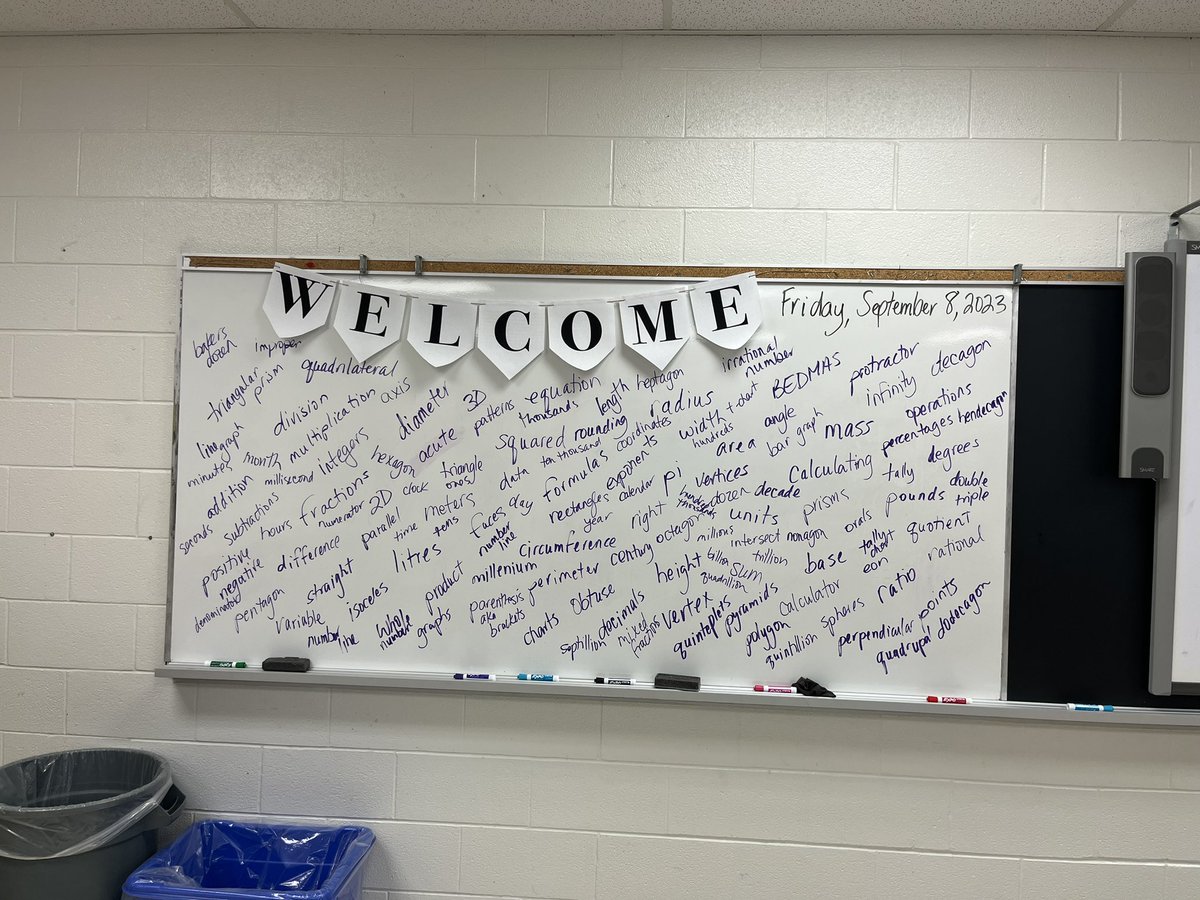 WELCOME
Friday, September 8, 2023
bakers dozen
improper
triangular prism
quadrilateral
line graph
division
multiplication
axis
diameter
3D
patterns
equation
thousands
length
heptagon
irrational number
BEDMAS
protractor
decagon
minutes
month
millisecond
integers
hexagon
acute
squared
rounding
radius
width
t-chart
angle
infinity
operations
addition
subtractions
fractions
triangle
data
ten thousand
coordinates
hundreds
area
bar graph
mass
percentages
hendecagon
seconds
hours
numerator
2D
clock
ones
meters
formulas
exponents
pi
vertices
calculating
tally
degrees
positive
negative
difference
parallel
time
tons
faces
day
rectangles
calendar
hundred thousands
dozen
decade
prisms
pounds
double
triple
denominator
pentagon
straight
litres
number line
year
right
octagon
millions
units
intersect
nonagon
quotient
variable
isoceles
product
millenium
circumference
century
billion
trillion
base
tally chart
rational
number line
whole number
graphs
parenthesis aka brackets
perimeter
obtuse
height
sum
quadrillion
calculator
ratio
points
charts
septillion
decimals
mixed fractions
vertex
quinteplets
pyramids
polygon
quintillion
spheres
perpendicular
quadrupal
dodecagon
SMART